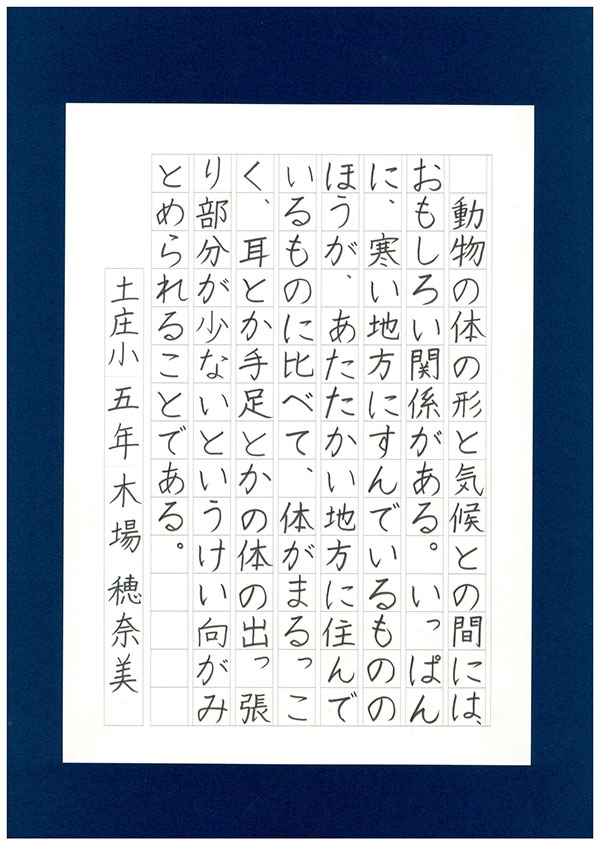 動物の体の形と気候との間には、
おもしろい関係がある。いっぱん
に、寒い地方にすんでいるものの
ほうが、あたたかい地方に住んで
いるものに比べて、体がまるっこ
く、耳とか手足とかの体の出っ張
り部分が少ないというけい向がみ
とめられることである。
土庄小 五年 木場 穂奈美